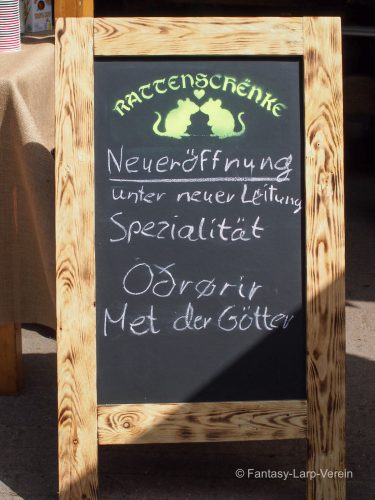 RATTENSCHËNKE
Neueröffnung
unter neuer Leitung
Spezialität
Oðrørir
Met der Götter
© Fantasy-Larp-Verein